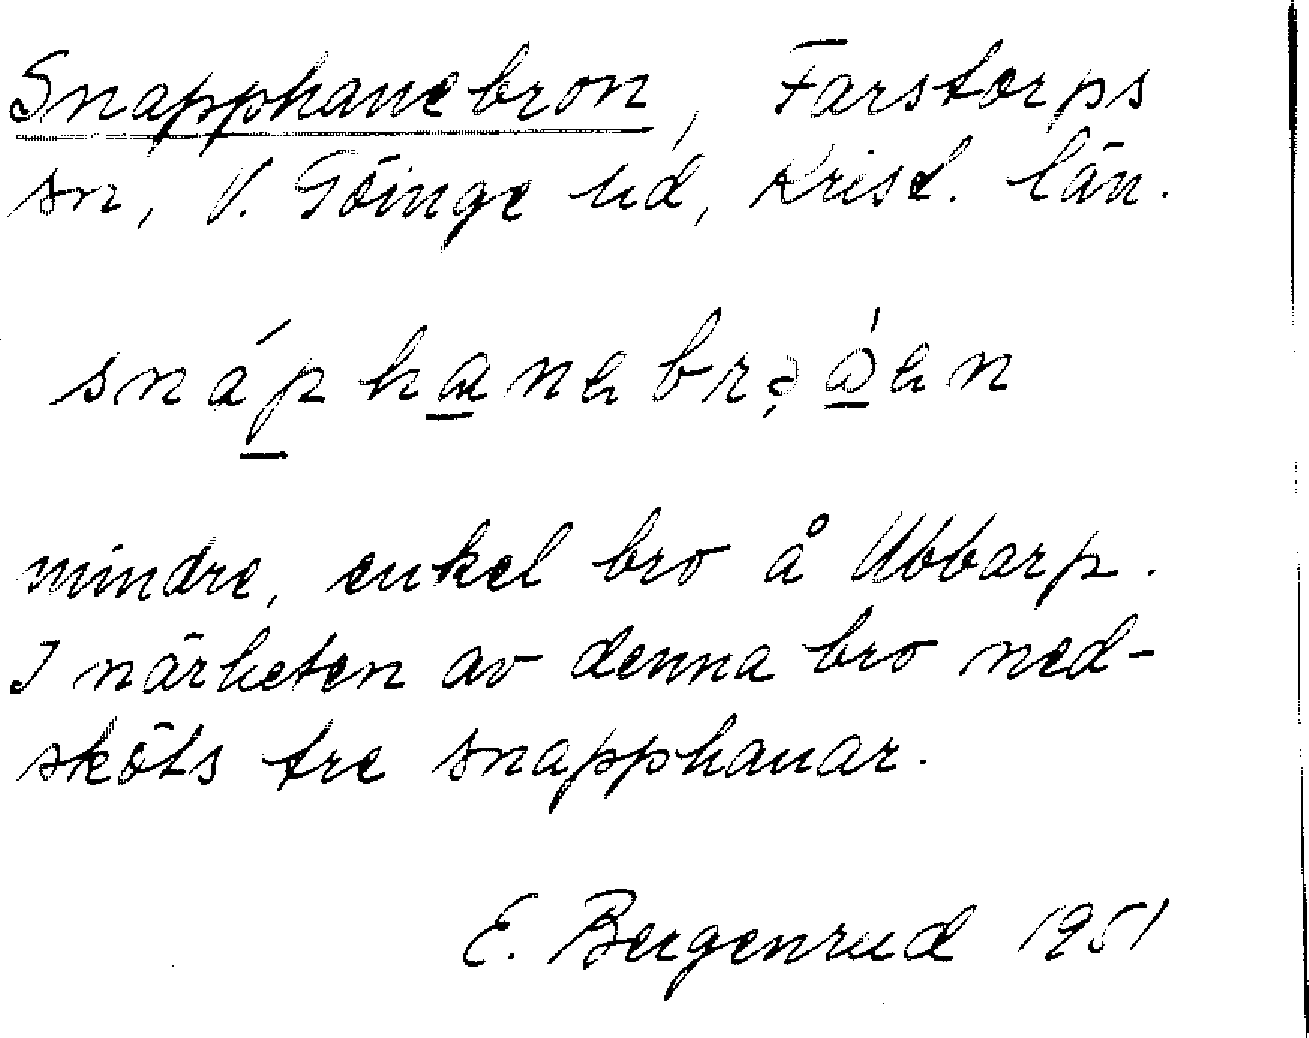 Snapphanebron, Farstorps
sn, V. Göinge hd, Krist. län.
mindre, enkel bro å Ubbarp.
I närheten av denna bro ned-
sköts tre snapphanar.
E. Bergenrud 1951